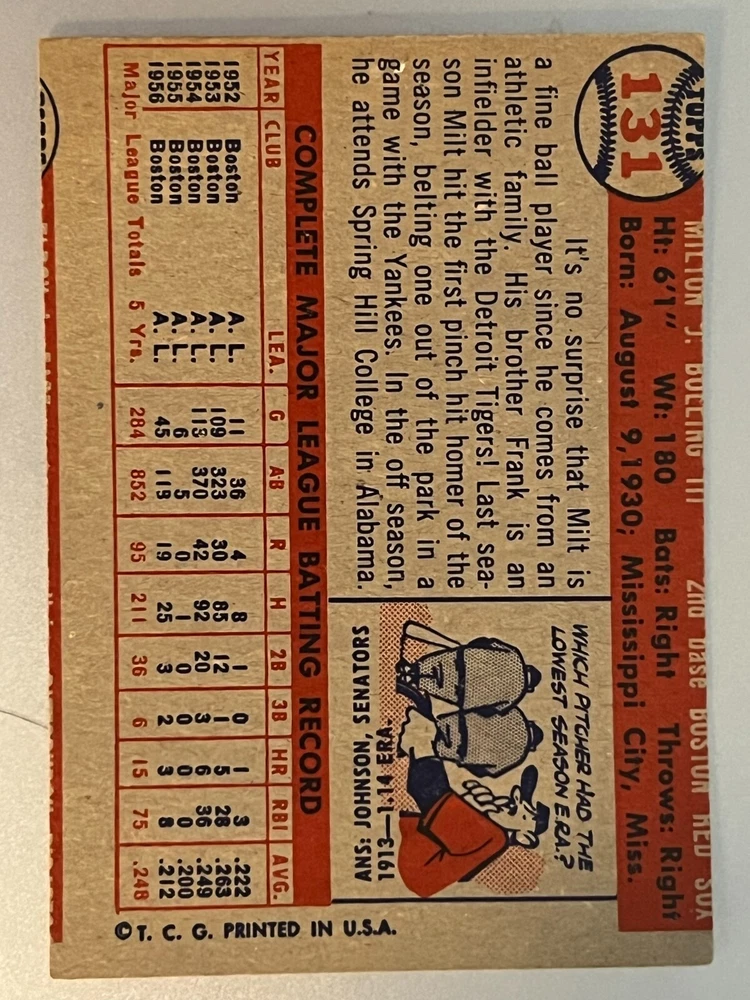 TOPPS
131
MILTON J. BOLLING III 2nd base BOSTON RED SOX
Ht: 6'1" Wt: 180 Bats: Right Throws: Right
Born: August 9, 1930; Mississippi City, Miss.
It's no surprise that Milt is
a fine ball player since he comes from an
athletic family. His brother Frank is an
infielder with the Detroit Tigers! Last sea-
son Milt hit the first pinch hit homer of the
season, belting one out of the park in a
game with the Yankees. In the off season,
he attends Spring Hill College in Alabama.
WHICH PITCHER HAD THE
LOWEST SEASON E.R.A.?
ANS: JOHNSON, SENATORS
1913—1.14 ERA.
COMPLETE MAJOR LEAGUE BATTING RECORD
YEAR CLUB LEA. G AB R H 2B 3B HR RBI AVG.
1952 Boston A. L. 11 36 4 8 1 0 1 3 .222
1953 Boston A. L. 109 323 30 85 12 1 5 28 .263
1954 Boston A. L. 113 370 42 92 20 3 6 36 .249
1955 Boston A. L. 6 5 0 1 0 0 0 0 .200
1956 Boston A. L. 45 118 19 25 3 2 3 8 .212
Major League Totals 5 Yrs. 284 852 95 211 36 6 15 75 .248
© T. C. G. PRINTED IN U.S.A.